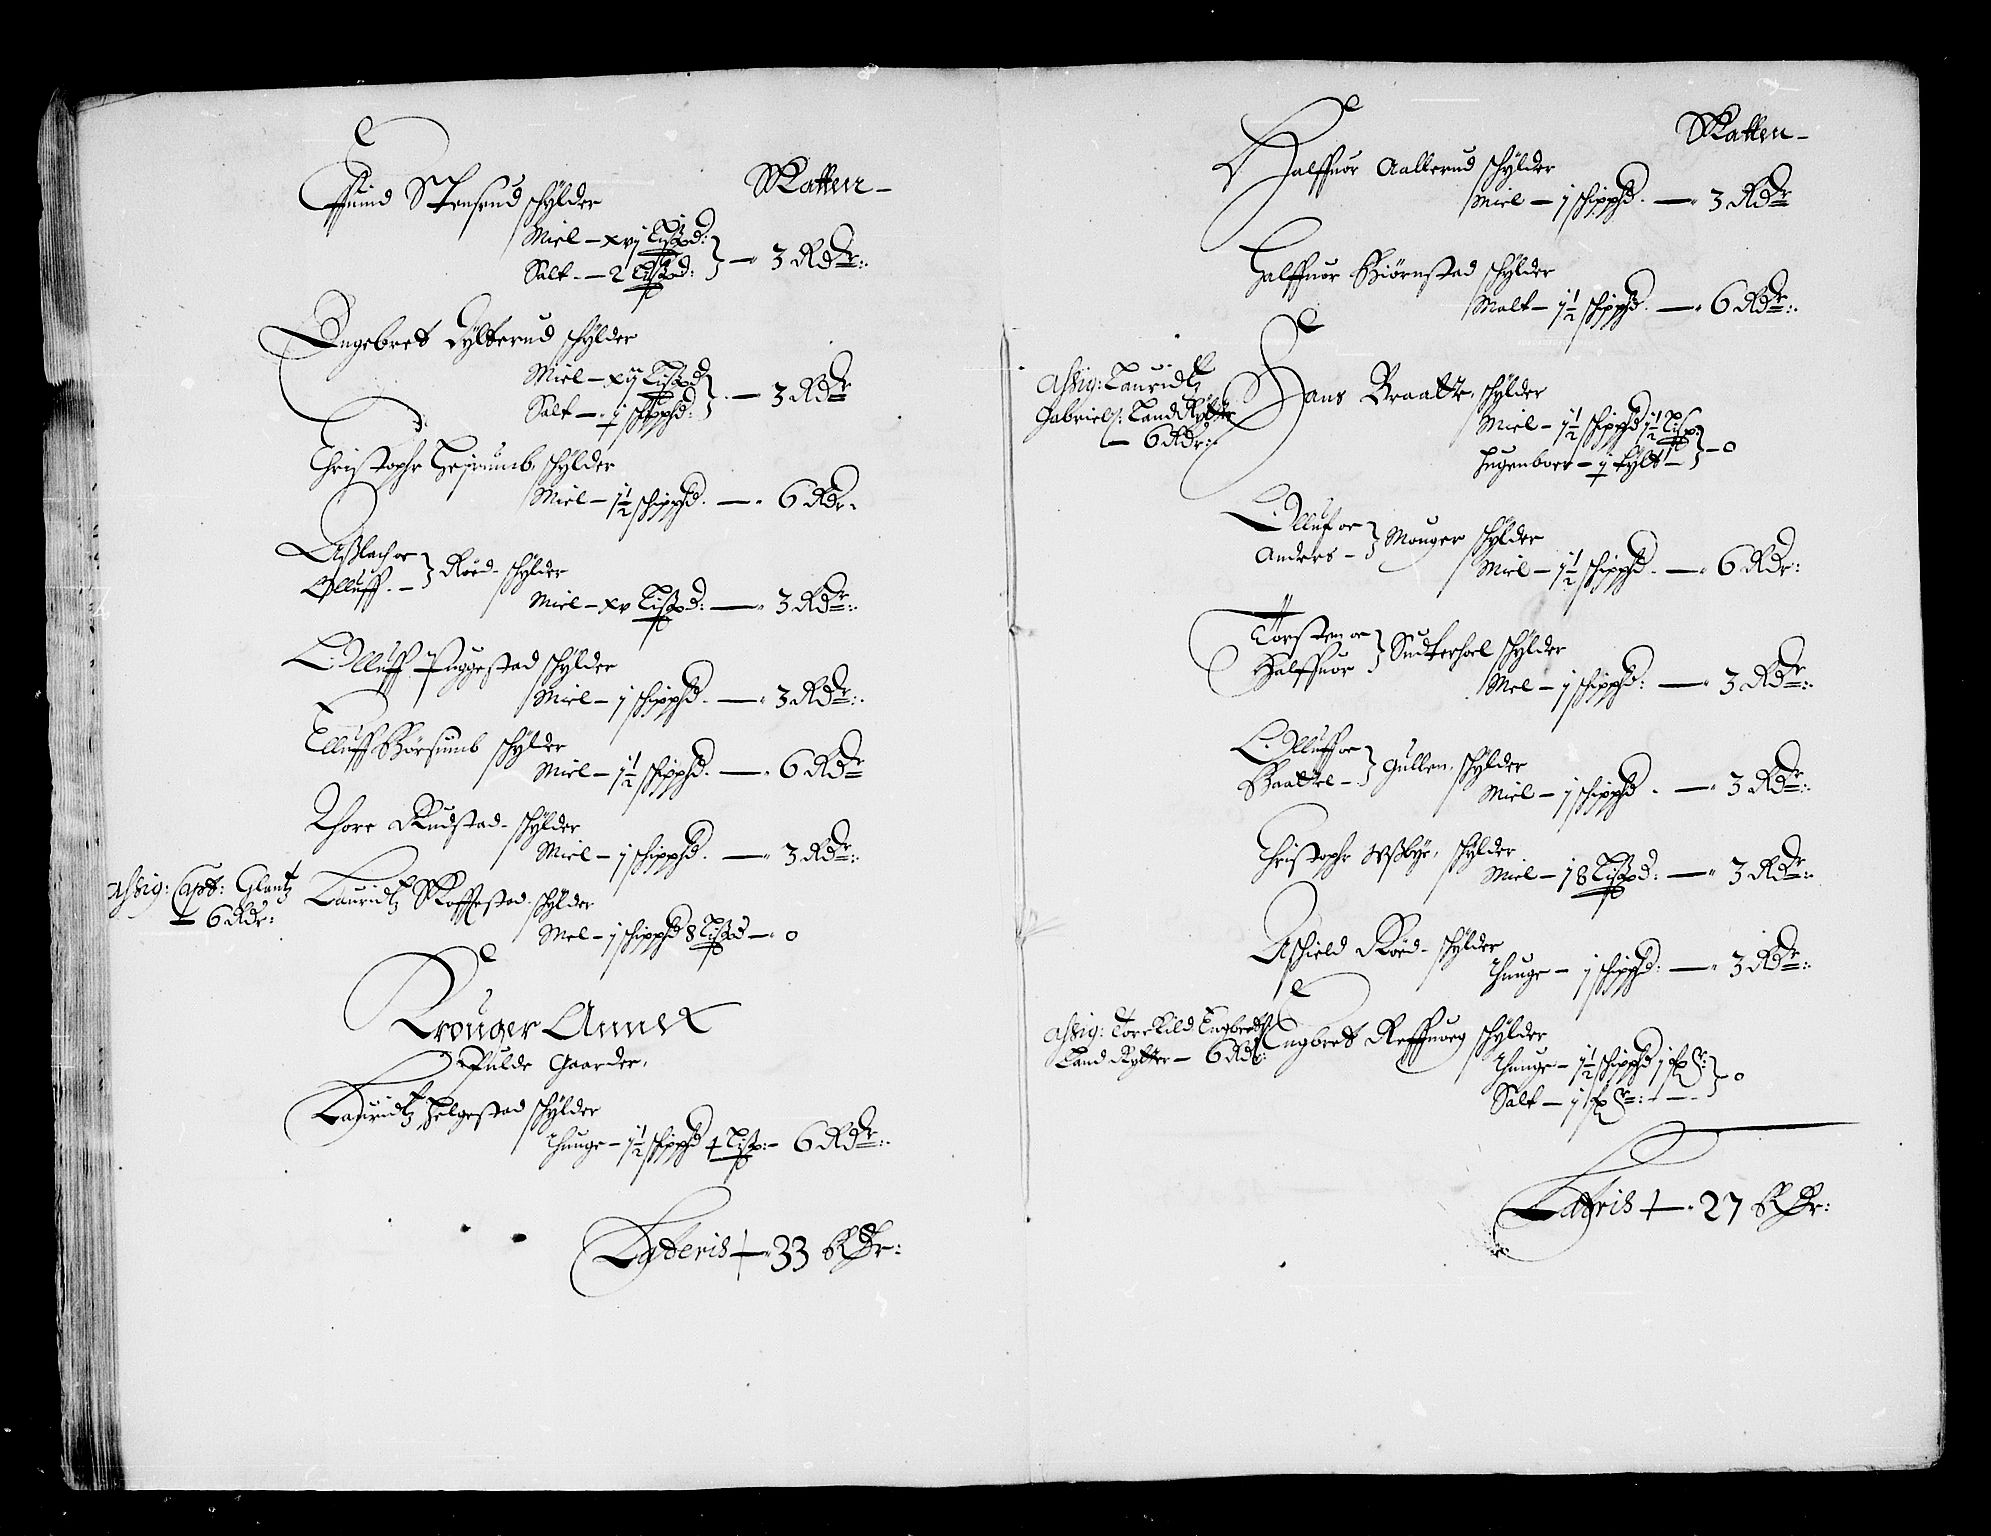 Skatten
Effuind Stensrud schÿlder
Miel – xvj Lißpd:
Salt – 2 Lißpd: } – 3 Rdr:
Engebret Gÿlterud schÿlder
Miel – xij Lißpd
Salt – j schippd: } – 3 Rdr
Christophr Hejrumb, schÿlder
Miel – 1 1/2 schippd. – 6 Rdr.
Aßlach oc
Olluff – } Röed schÿlder
Miel – xv Lißpd: – 3 Rdr:
Olluff Puggestad schÿlder
Miel – j schippd. – 3 Rdr:
Elluff Börsumb schÿlder
Miel – 1 1/2 schippd. – 6 Rdr
Thore Rudstad schÿlder
Miel – j schippd. – 3 Rdr:
Assig: Capt: Glantz
– 6 Rdr:
Lauridtz Skoffestad schÿlder
Mel – j schippd 8 Lißpd – 0
Krouger Annex
Fulde Gaarder,
Lauridtz Helgestad schÿlder
Thunge – 1 1/2 schippd 4 Lißp: – 6 Rdr:
Lateris – 33 Rdr:
Skatten
Halffuor Aallerud schÿlder
Miel – j schippd. – 3 Rdr
Halffuor Biörnstad schÿlder
Malt – 1 1/2 schippd. – 6 Rdr:
Assig: Lauridtz
Gabriels: Land Rÿtter
– 6 Rdr:
Hans Braatte, schÿlder
Miel – 1 1/2 schippd 1 1/2 Lisp:
Hugenboer – j tÿlt } – 0
Olluf oc
Anders – } Mouger schÿlder
Miel – 1 1/2 schippd. – 6 Rdr:
Torsten oc
Halffuor } Sudterhoel schÿlder
Mel – j schippd: – 3 Rdr:
Olluff oc
Baattel – } Gullen, schÿlder
Miel – j schippd. – 3 Rdr:
Christophr Wßbÿe, schÿlder
Miel – 18 Lißpd: – 3 Rdr:
Aschield Röed schÿlder
Thunge – j schippd: – 3 Rdr:
Assig: Torckild Engbretß:
Land Rytter – 6 Rdr:
Engbret Reffuorg schÿlder
Thunge – 1 1/2 schippd j
Salt – j } – 0
Lateris – 27 Rdr: